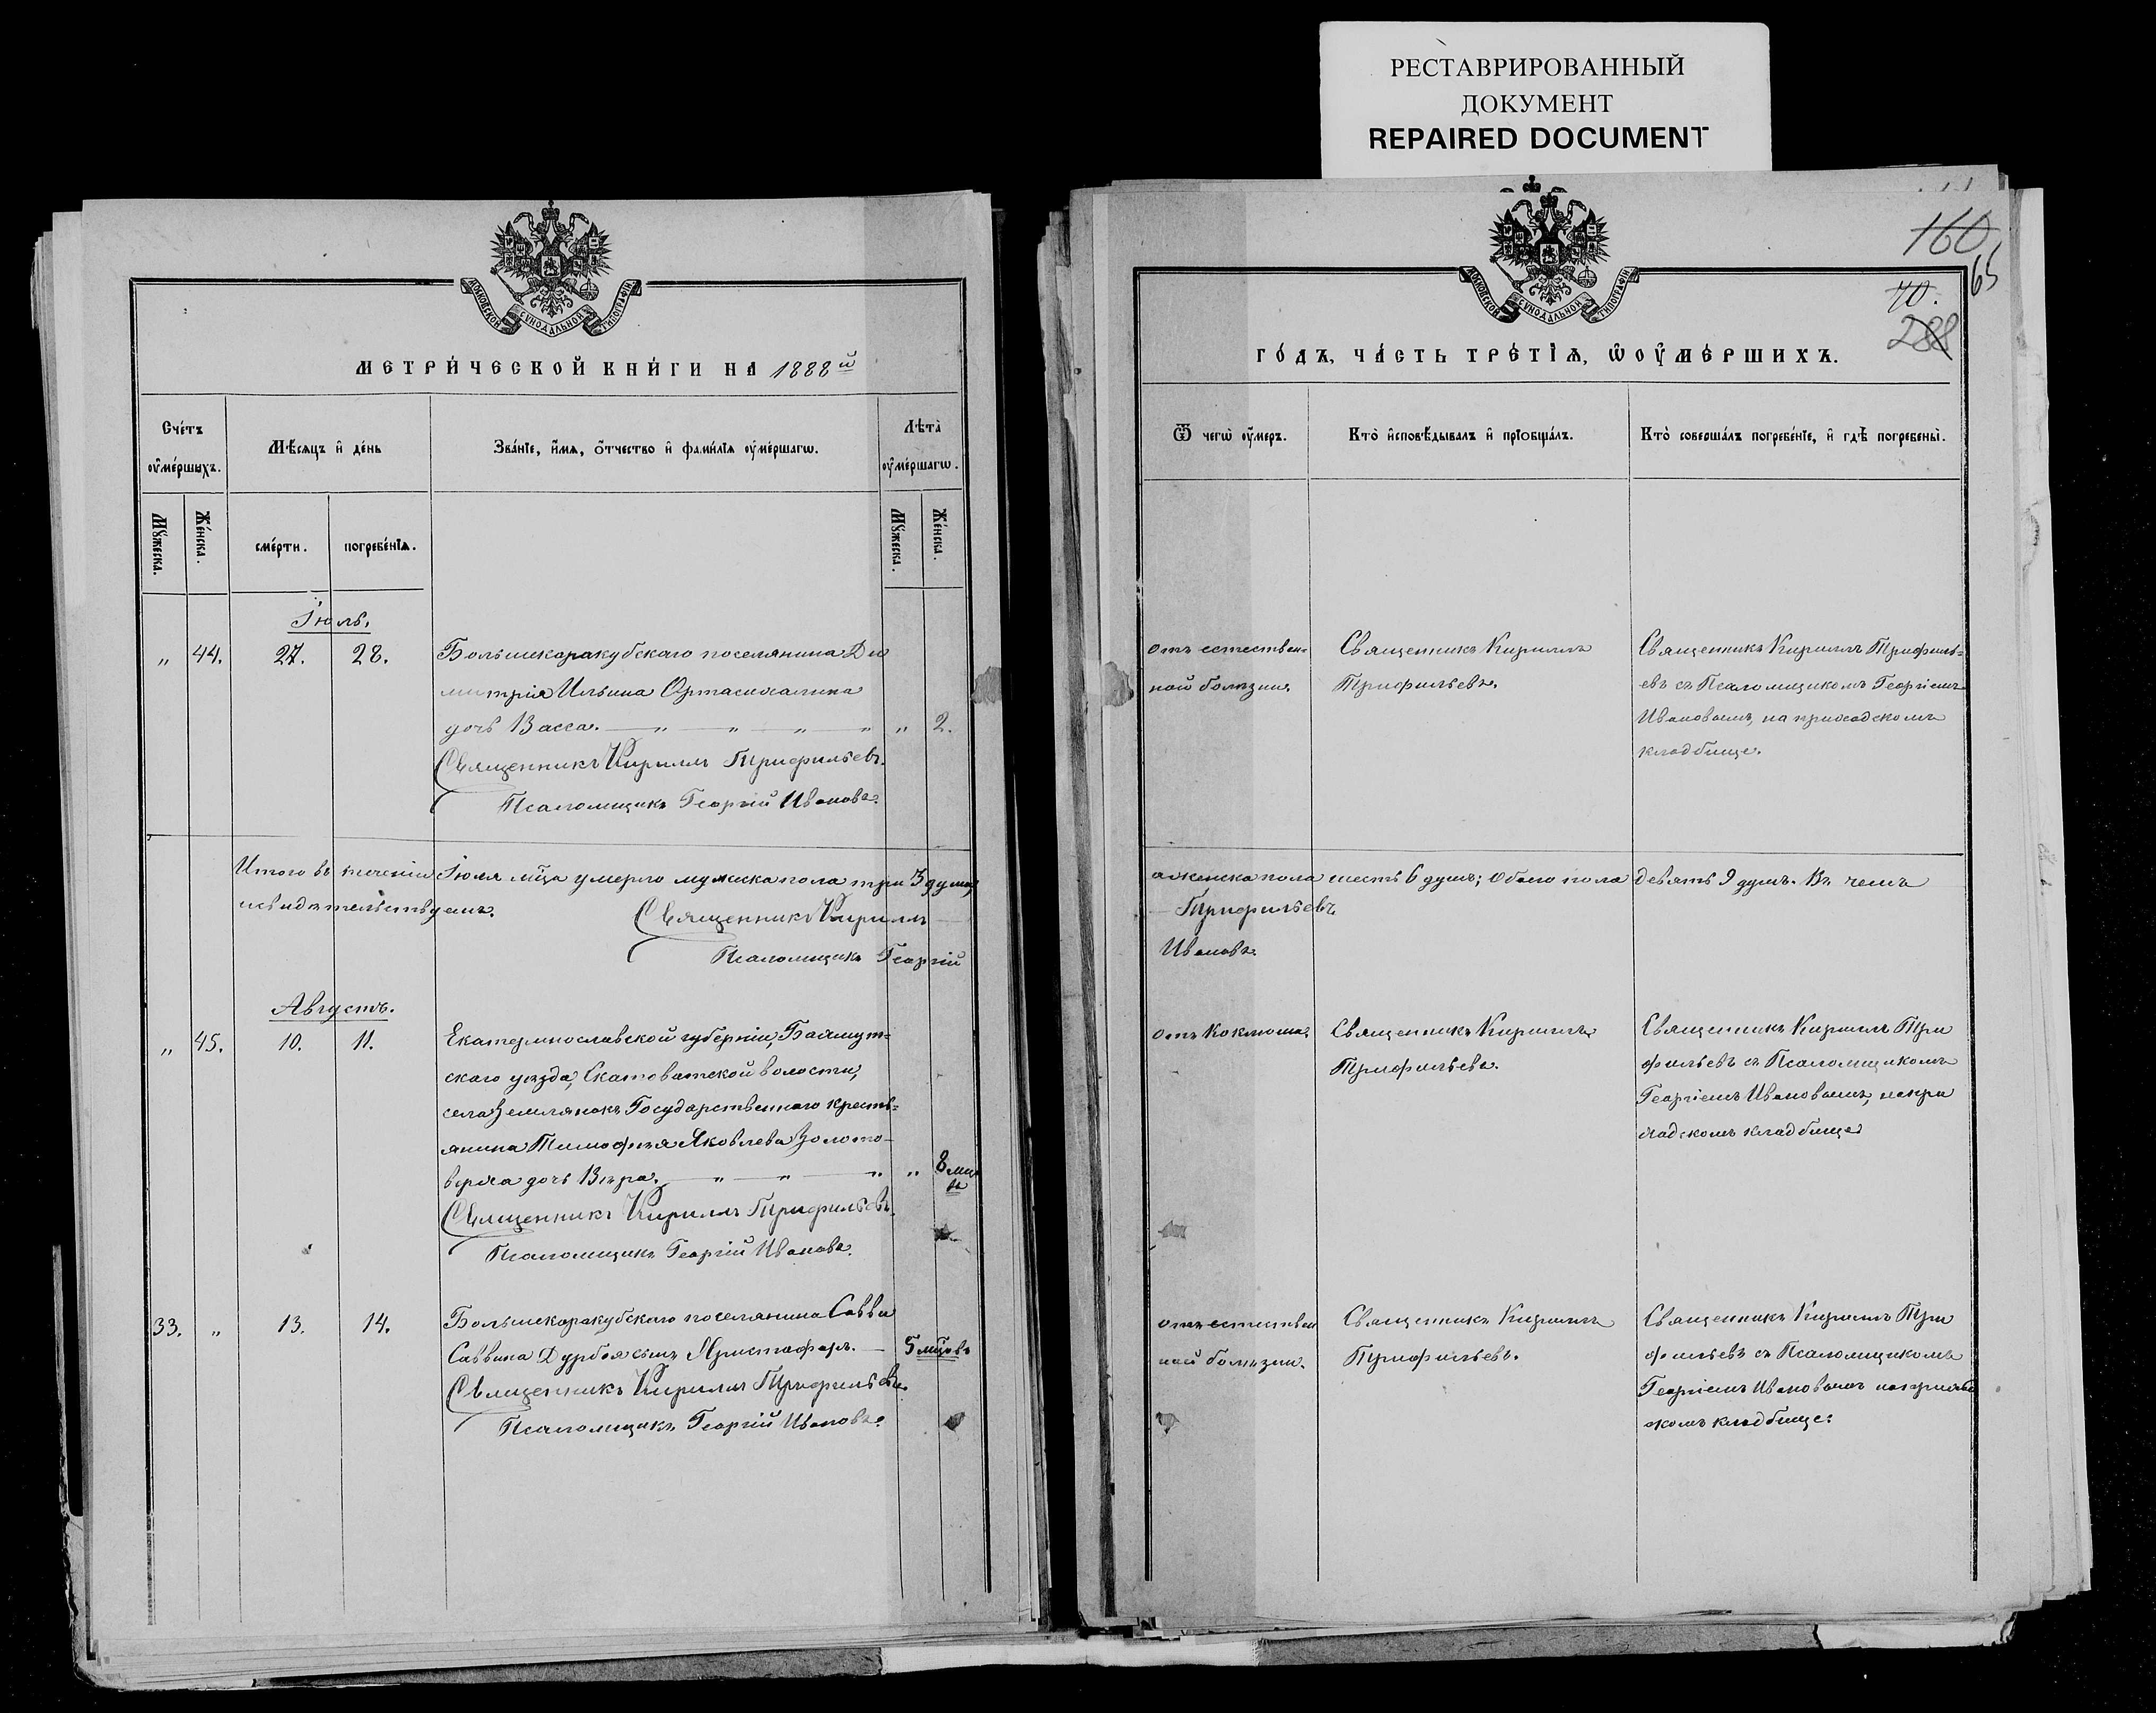 РЕСТАВРИРОВАННЫЙ
ДОКУМЕНТ
REPAIRED DOCUMENT
МОСКОВСКОЙ СУНОДАЛЬНОЙ ТИПОГРАФІИ
МЕТРИ́ЧЕСКОЙ КНИ́ГИ НА 1888й
Счетъ оумершыхъ.
Мѣсяцъ и день
Званіе, имя, отчество и фамилія оумершагѡ.
Лѣта оумершагѡ.
Мꙋжеска.
Женска.
смерти.
погребенія.
Мꙋжеска.
Женска.
Іюль.
„ 44. 27. 28. Большекаракубскаго поселянина Ди
митрія Ильина
дочь Васса. — „ — „ — „ — „ „ 2.
Священникъ Кириллъ Трифильевъ.
Псаломщикъ Георгій Ивановъ.
Итого въ теченіи Іюля мца умерло мужеска пола три 3 души,
и свидѣтельствуемъ. Священникъ Кириллъ
Псаломщикъ Георгій
Августъ.
„ 45. 10. 11. Екатеринославской губерніи, Бахмут-
скаго уѣзда, Скотоватской волости,
села Землянокъ Государственнаго кресть-
янина Тимофѣя Яковлева Золото-
верха дочь Вѣра. — „ — „ — „ „ 8 мца
Священникъ Кириллъ Трифильевъ.
Псаломщикъ Георгій Ивановъ.
33. „ 13. 14. Большекаракубскаго поселянина Саввы
Саввина Дурбоя сынъ Христофоръ. — 5 мцовъ
Священникъ Кириллъ Трифильевъ.
Псаломщикъ Георгій Ивановъ.
160
65
70.
288
МОСКОВСКОЙ СУНОДАЛЬНОЙ ТИПОГРАФІИ
ГОДЪ, ЧАСТЬ ТРЕТІЯ, Ѡ ОУМЕРШИХЪ.
Ѿ чегѡ оумеръ.
Кто исповѣдывалъ и пріобщалъ.
Кто совершалъ погребеніе, и гдѣ погребены.
отъ естествен-
ной болѣзни.
Священникъ Кириллъ
Трифильевъ.
Священникъ Кириллъ Трифиль-
евъ съ Псаломщикомъ Георгіемъ
Ивановымъ, на приходскомъ
кладбище.
а женска пола шесть 6 душъ; обоего пола девять 9 душъ. Въ чемъ
Трифильевъ
Ивановъ.
отъ Коклюша.
Священникъ Кириллъ
Трифильевъ.
Священникъ Кириллъ Три
фильевъ съ Псаломщикомъ
Георгіемъ Ивановымъ, на при
ходскомъ кладбище
отъ естествен
ной болѣзни.
Священникъ Кириллъ
Трифильевъ.
Священникъ Кириллъ Три
фильевъ съ Псаломщикомъ
Георгіемъ Ивановымъ на приход
скомъ кладбище.